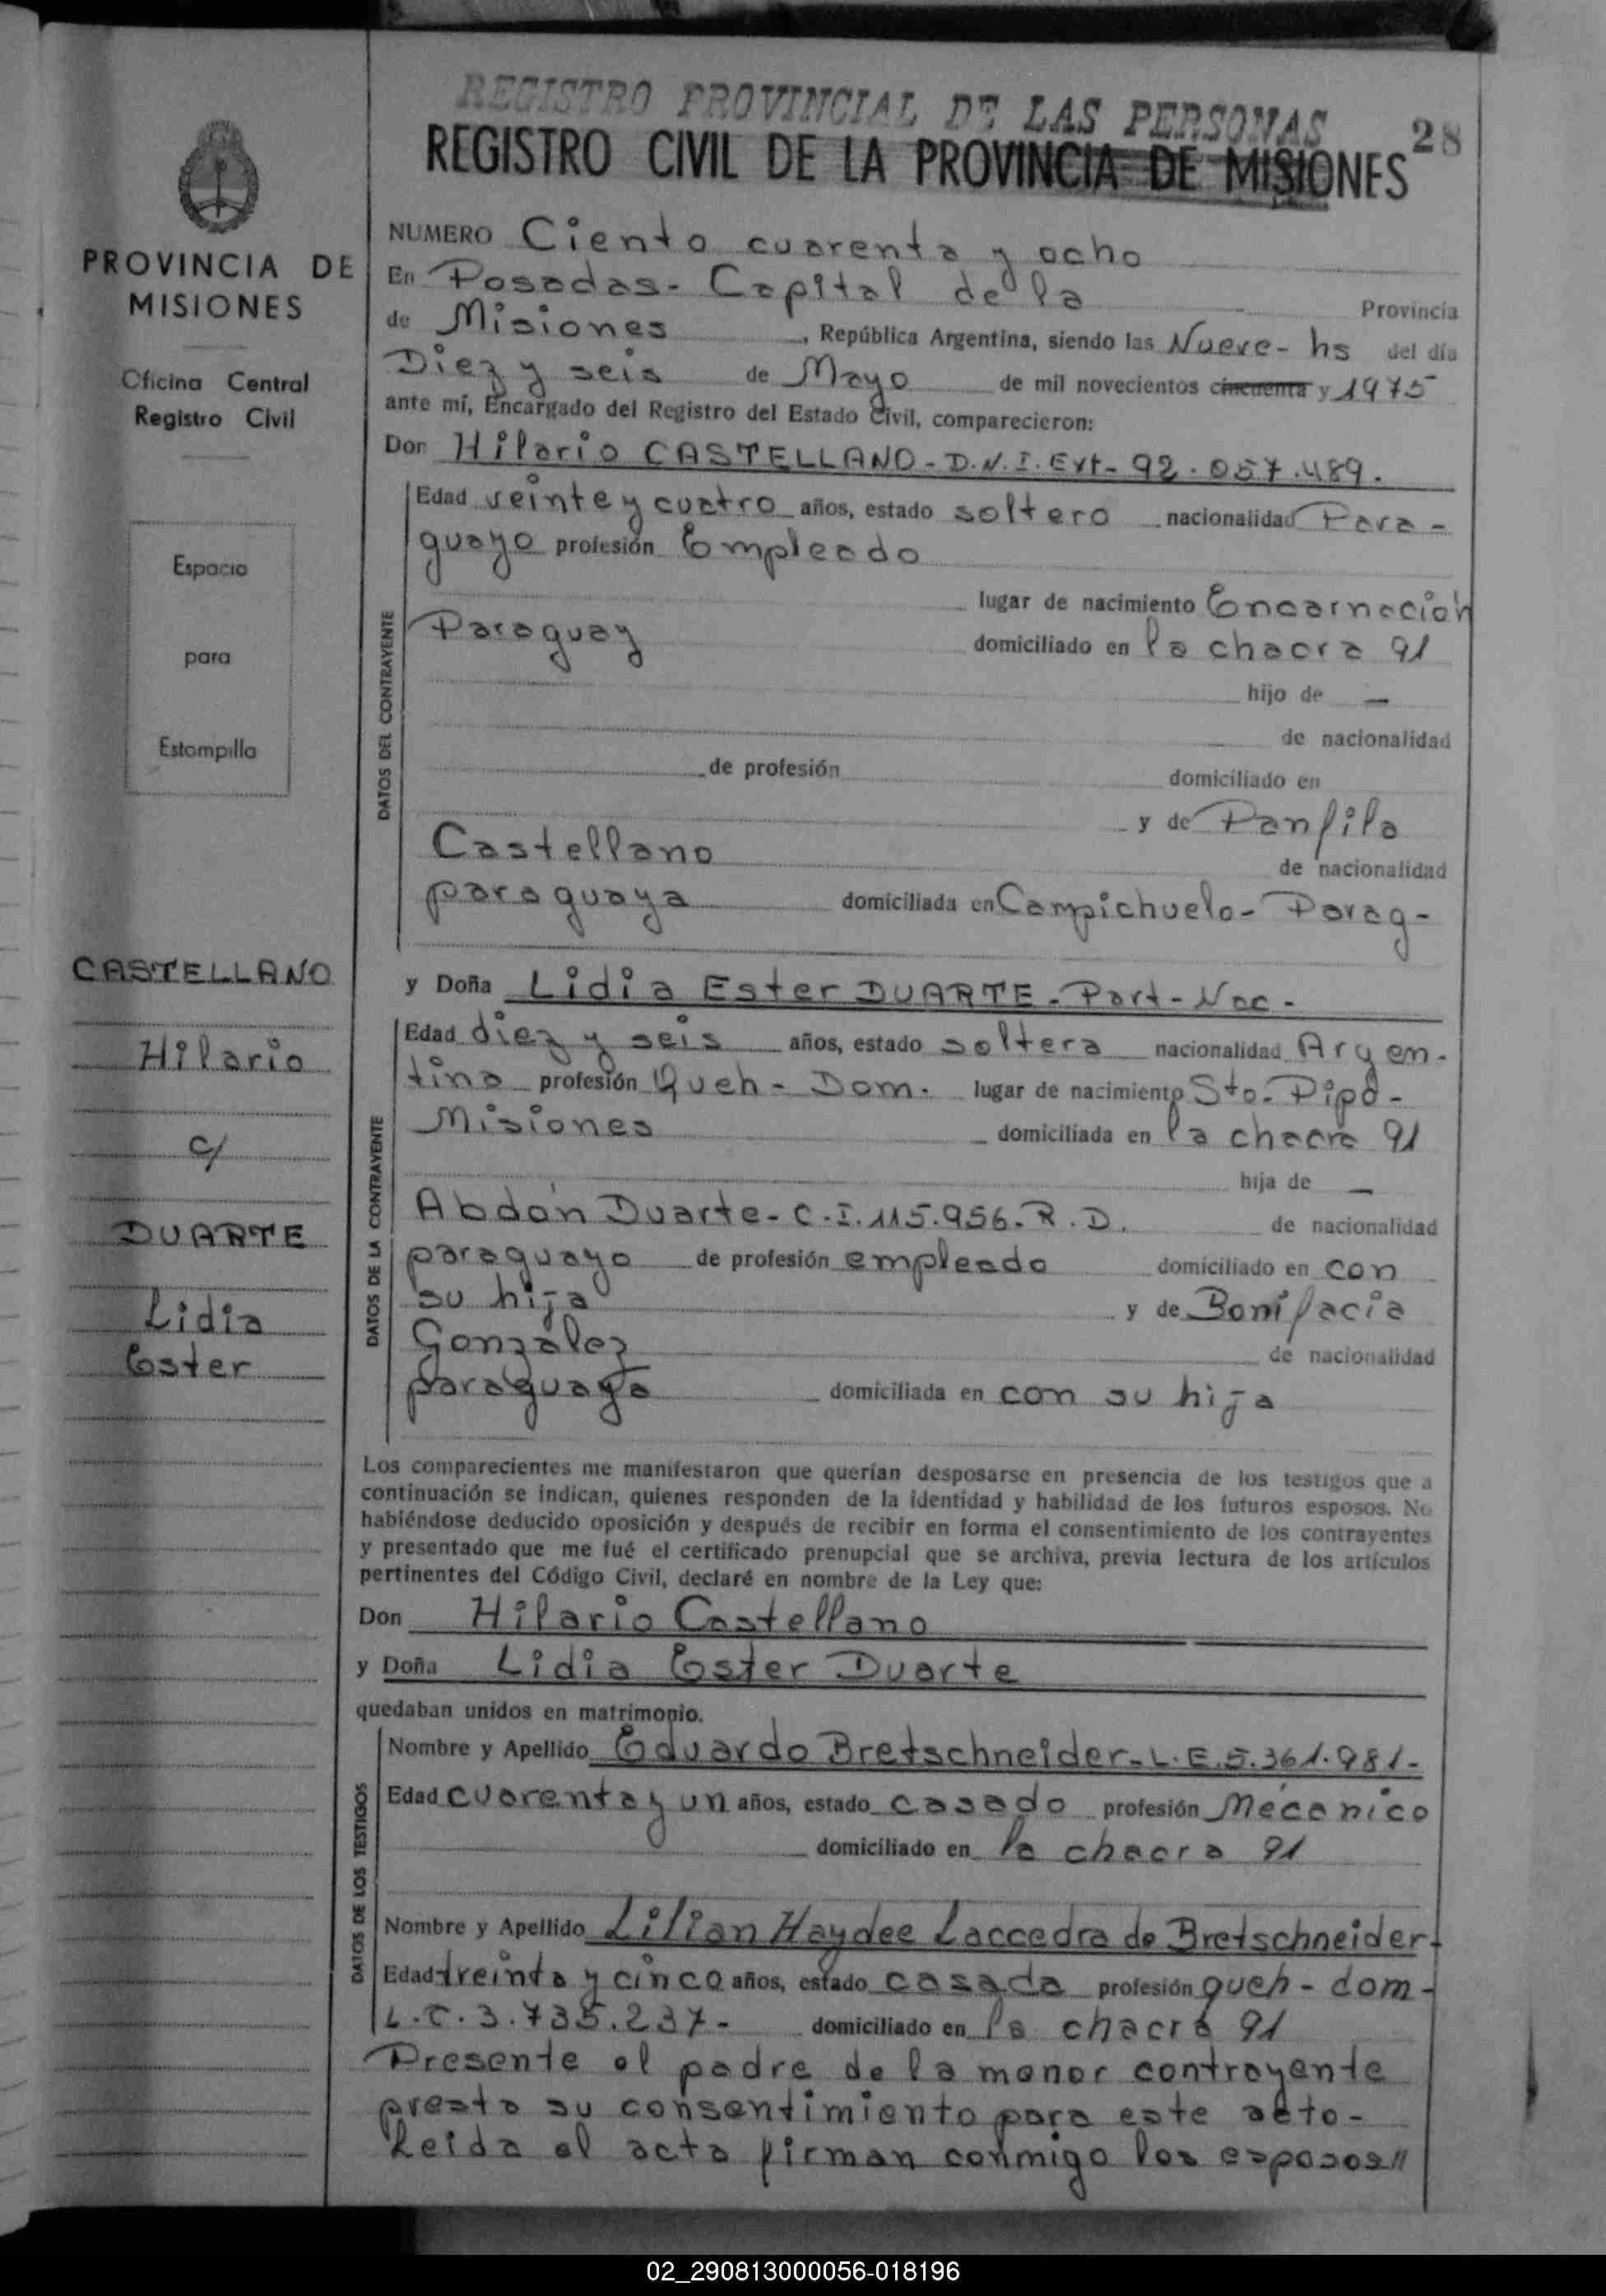 REGISTRO PROVINCIAL DE LAS PERSONAS
REGISTRO CIVIL DE LA PROVINCIA DE MISIONES
28
PROVINCIA DE
MISIONES
Oficina Central
Registro Civil
Espacio
para
Estampilla
CASTELLANO
Hilario
c/
DUARTE
Lidia
Ester
NUMERO Ciento cuarenta y ocho
En Posadas- Capital de la Provincia
de Misiones, República Argentina, siendo las Nueve- hs del día
Diez y seis de Mayo de mil novecientos cincuenta y 1975
ante mí, Encargado del Registro del Estado Civil, comparecieron:
Don Hilario CASTELLANO- D.N.I. Ext- 92.057.489.
DATOS DEL CONTRAYENTE
Edad veinte y cuatro años, estado soltero nacionalidad Para-
guayo profesión Empleado
lugar de nacimiento Encarnación
Paraguay domiciliado en la chacra 91
hijo de —
de nacionalidad
de profesión domiciliado en
y de Panfila
Castellano de nacionalidad
paraguaya domiciliada en Campichuelo- Parag-
y Doña Lidia Ester DUARTE- Part- Nac-
DATOS DE LA CONTRAYENTE
Edad diez y seis años, estado soltera nacionalidad Argen-
tina profesión Queh- Dom. lugar de nacimiento Sto- Pipó-
Misiones domiciliada en la chacra 91
hija de —
Abdón Duarte- C.I. 115.956- R.D. de nacionalidad
paraguayo de profesión empleado domiciliado en con
su hija y de Bonifacia
González de nacionalidad
paraguaya domiciliada en con su hija
Los comparecientes me manifestaron que querían desposarse en presencia de los testigos que a
continuación se indican, quienes responden de la identidad y habilidad de los futuros esposos. No
habiéndose deducido oposición y después de recibir en forma el consentimiento de los contrayentes
y presentado que me fué el certificado prenupcial que se archiva, previa lectura de los artículos
pertinentes del Código Civil, declaré en nombre de la Ley que:
Don Hilario Castellano
y Doña Lidia Ester Duarte
quedaban unidos en matrimonio.
DATOS DE LOS TESTIGOS
Nombre y Apellido Eduardo Bretschneider- L.E. 5.361.981-
Edad cuarenta y un años, estado casado profesión Mecánico
domiciliado en la chacra 91
Nombre y Apellido Lilian Haydee Laccedra de Bretschneider-
Edad treinta y cinco años, estado casada profesión queh- dom-
L.C. 3.735.237- domiciliado en la chacra 91
Presente el padre de la menor contrayente
presta su consentimiento para este acto-
Leida el acta firman conmigo los esposos//
02_290813000056-018196